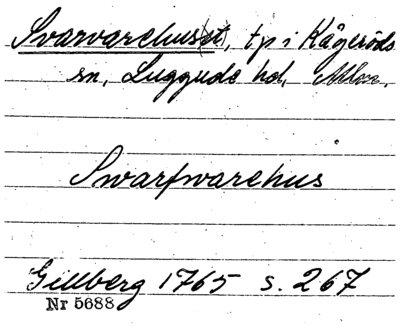 Svarvarehuset, tp i Kågeröds
sn, Luggude hd, Mlm.
Swarfwarehus
Gillberg 1765 s. 267
Nr 5688